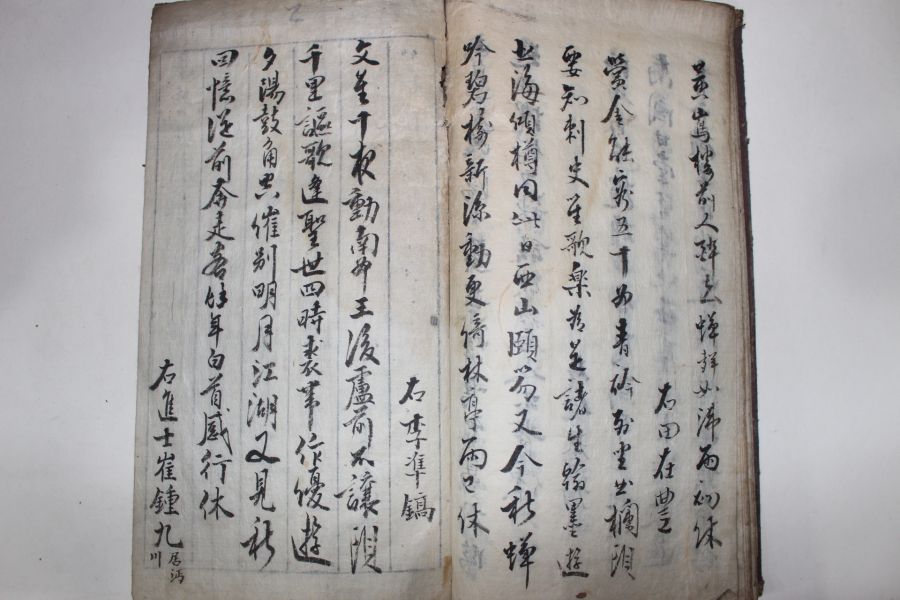 樓前人醉去蟬聲如沸雨初休
右田在豊
五十州青衿列坐出欄頭
要知刺史笙歌樂爲是諸生翰墨遊
北海傾樽同此日西山頤笏又今秋蟬
吟碧樹新凉動更倚林亭雨已休
右李準鎬
文星十夜動南州王後盧前不讓頭
千里謳歌逢聖世四時裘 作優遊
夕陽鼓角共催別明月江湖又見秋
回憶從前奔走客 年白首感行休
右進士崔鍾九 居沔川